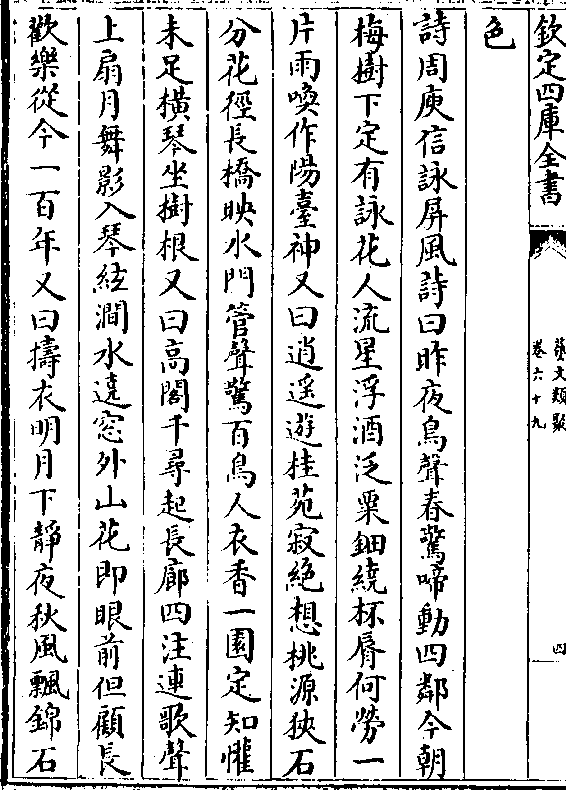 欽定四庫全書
藝文類聚
卷六十九
四
色
詩周庾信詠屏風詩曰昨夜鳥聲春驚啼動四鄰今朝
梅樹下定有詠花人流星浮酒泛粟鈿繞杯脣何勞一
片雨喚作陽臺神又曰逍遥遊桂苑寂絕想桃源狹石
分花徑長橋映水門管聲驚百鳥人衣香一園定知懽
未足橫琴坐樹根又曰髙閣千尋起長廊四注連歌聲
上扇月舞影入琴絃澗水遶窓外山花即眼前但願長
歡樂從今一百年又曰擣衣明月下靜夜秋風飄錦石